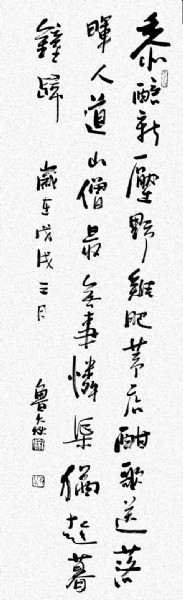 黍醅新壓野雞肥茅店酣歌送落
暉人道山僧最無事憐渠猶趁暮
鐘歸 歲在戊戌三月 魯大